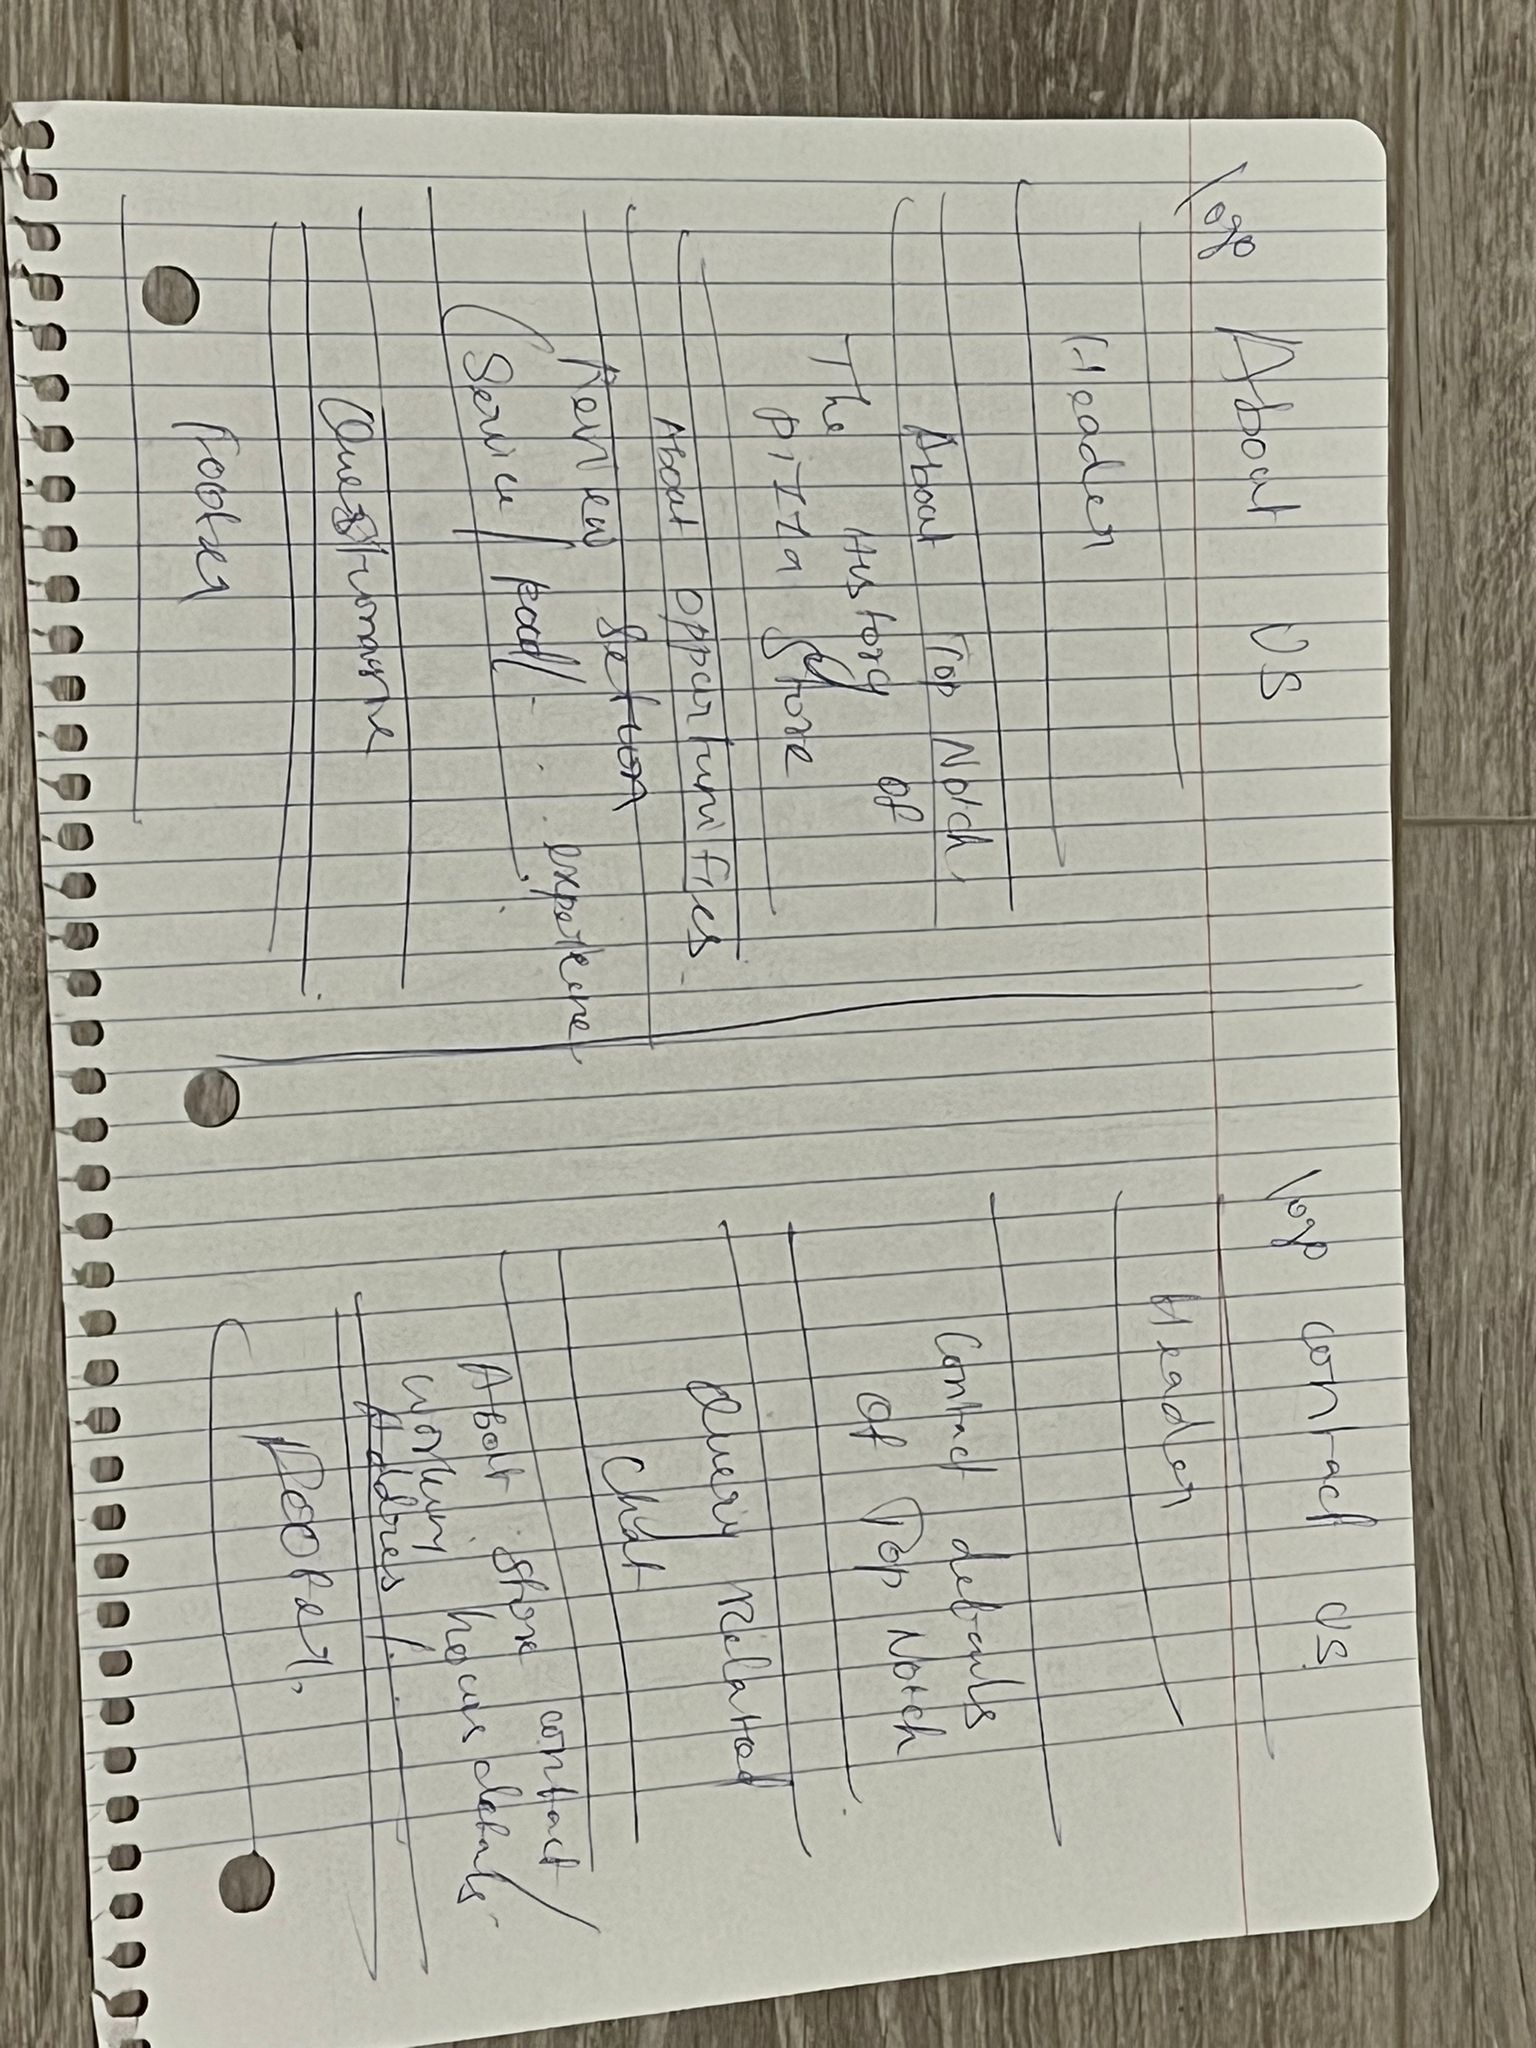 logo About US
Header
About Top Notch
The History of
Pizza Store
About opportunities.
Review Section
experience
Service / food/.
Questionarre
footer
logo contact US.
Header
Contact details
of Top Notch
Query Related
Chat
About Store contact
working hours details.
Address /.
Footer,